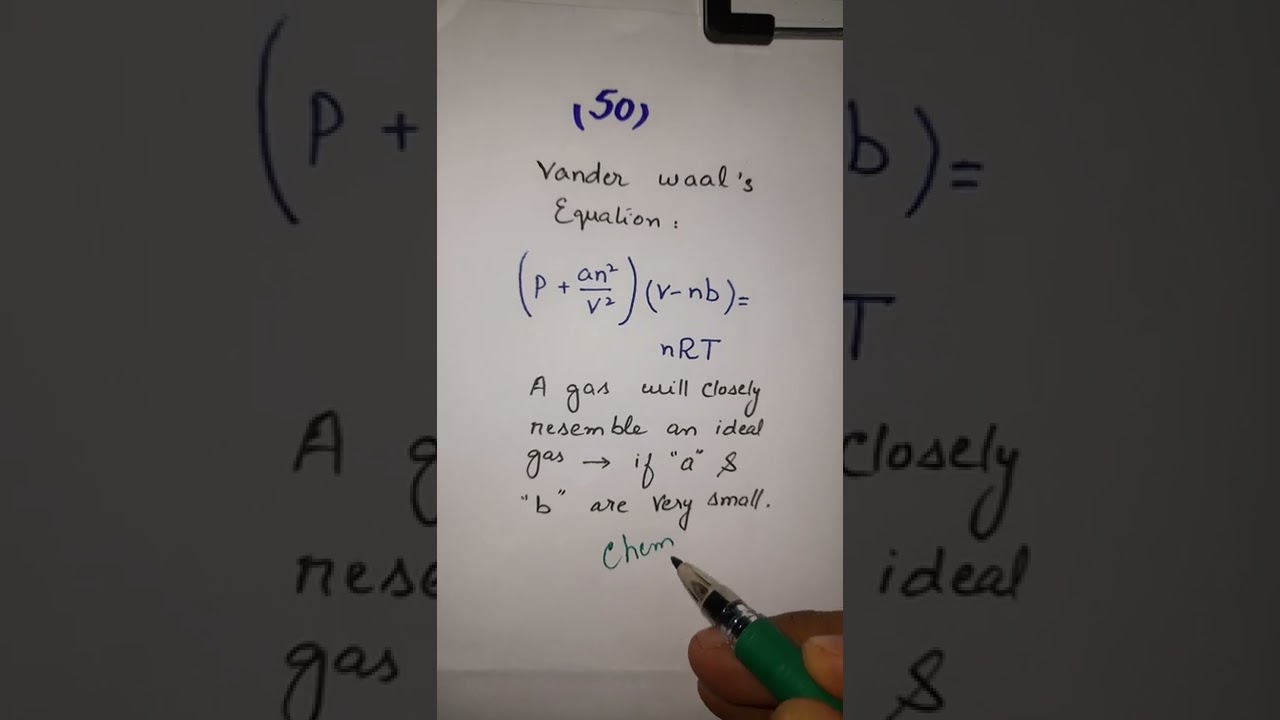 (50)
Vander waal's
Equation :
(P + an²/V²) (V - nb) =
nRT
A gas will closely
resemble an ideal
gas → if "a" &
"b" are very small.
Chem